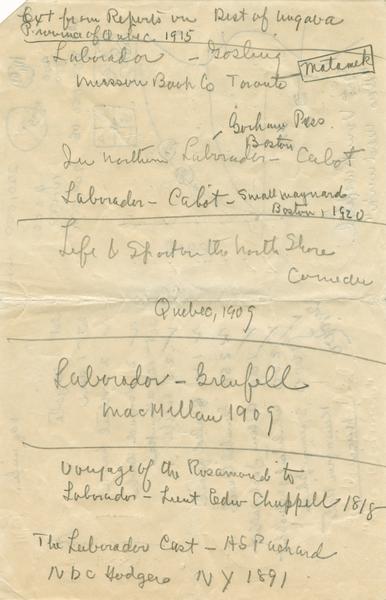 Ext from Reports on Dist of Ungava
Province of Quebec 1915
Laborador - Gosling
Musson Book Co Toronto
Matamek
Gorham Pres
Boston
In northern Laborador - Cabot
Laborador - Cabot - Small maynard
Boston, 1920
Life & Sport on the north Shore
Comeau
Quebec, 1909
Laborador - Grenfell
MacMillan 1909
Voyage of the Rosamond to
Laborador - Lieut Edw Chappell 1818
The Laborador Cast - AS Packard
NDC Hodgers NY 1891